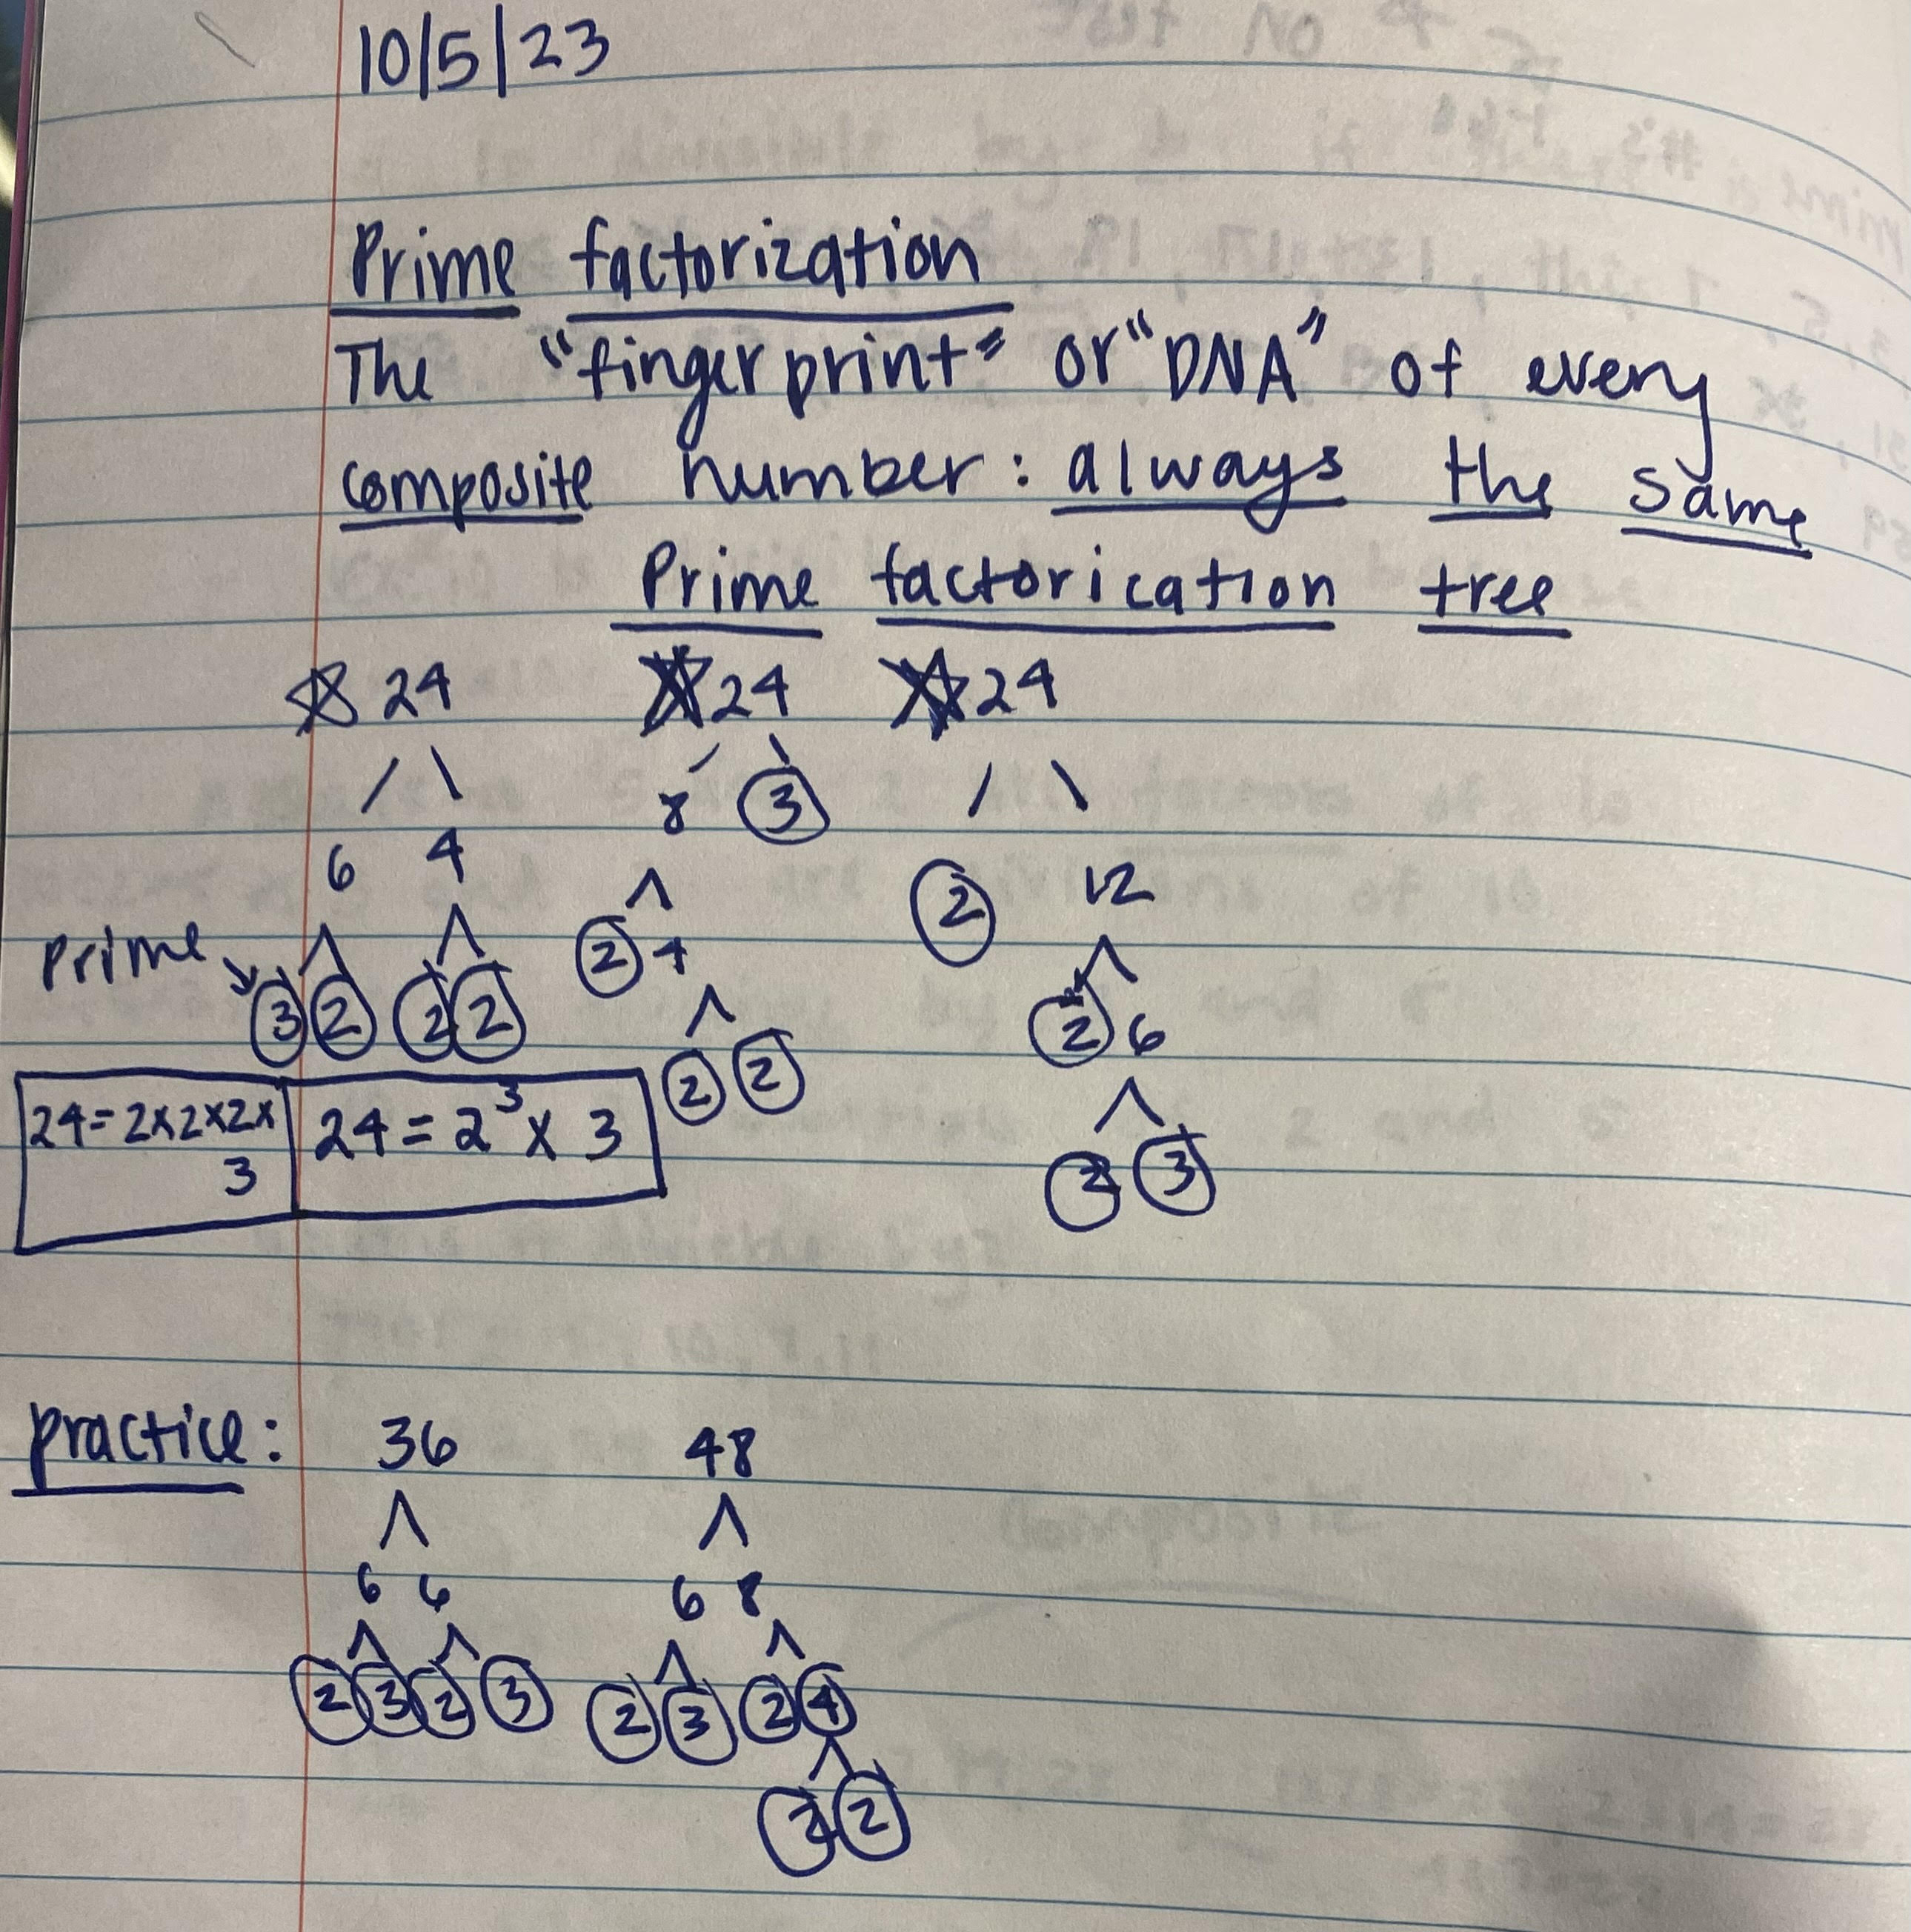 10/5/23
Prime factorization
The "fingerprint" or "DNA" of every
composite number: always the same
Prime factorication tree
24 24 24
8 3
6 4 2 12
Prime 2 4
3 2 2 2 2 6
2 2
24=2x2x2x 24=2³x 3
3 2 3
practice: 36 48
6 6 6 8
2 3 2 3 2 3 2 4
2 2